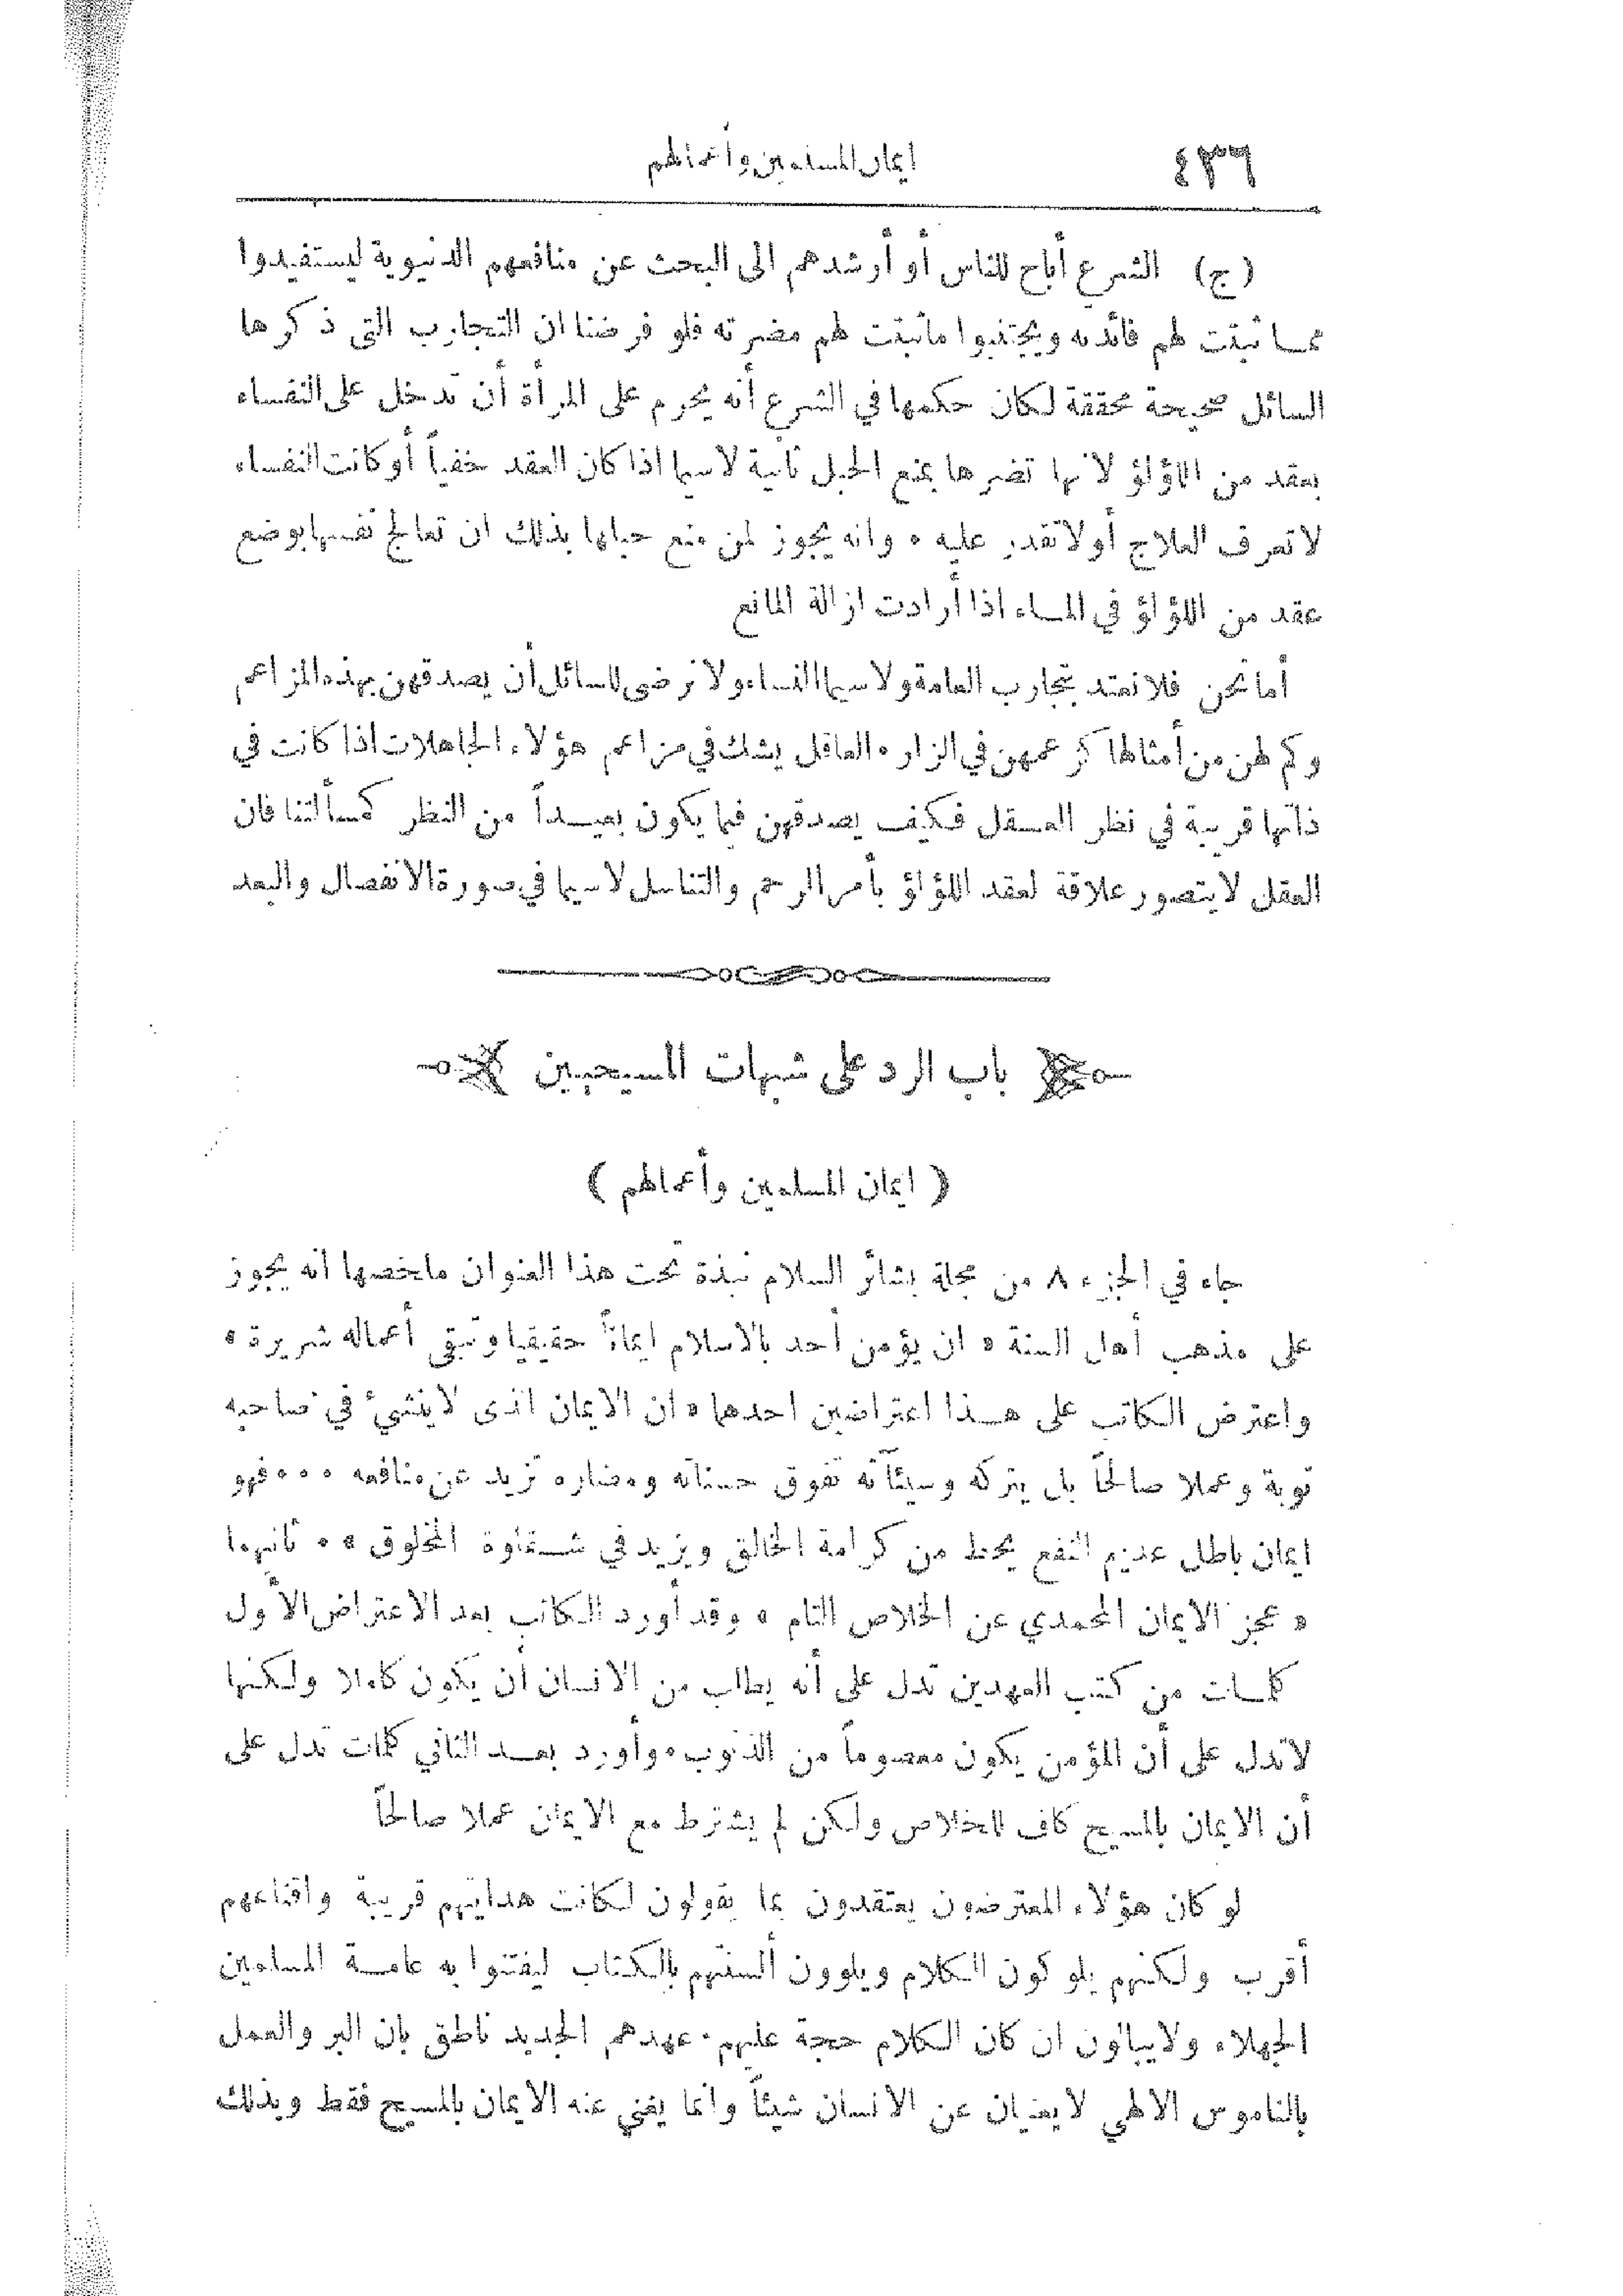 ٤٣٦
ايمان المسلمين وأعمالهم
(ج) الشرع أباح للناس أو أرشدهم الى البحث عن منافعهم الدنيوية ليستفيدوا
مما ثبتت لهم فائدته ويجتنبوا ما ثبتت لهم مضرته فلو فرضنا ان التجارب التي ذكرها
السائل صحيحة محققة لكان حكمها في الشرع أنه يحرم على المرأة أن تدخل على النفساء
بعقد من اللؤلؤ لانها تضرها بمنع الحبل ثانية لاسيما اذا كان العقد خفياً أو كانت النفساء
لا تعرف العلاج أو لا تقدر عليه ٠ وانه يجوز لمن منع حبلها بذلك ان تعالج نفسها بوضع
عقد من اللؤلؤ في الماء اذا أرادت ازالة المانع
أما نحن فلا نعتد بتجارب العامة ولا سيما النساء ولا نرضى للسائل أن يصدقهن بهذه المزاعم
وكم لهن من أمثالها كزعمهن في الزار ٠ العاقل يشك في مزاعم هؤلاء الجاهلات اذا كانت في
ذاتها قريبة في نظر العقل فكيف يصدقهن فيما يكون بعيداً من النظر كمسألتنا فان
العقل لا يتصور علاقة لعقد اللؤلؤ بأمر الرحم والتناسل لاسيما في صورة الانفصال والبعد
باب الرد على شبهات المسيحيين
( ايمان المسلمين وأعمالهم )
جاء في الجزء ٨ من مجلة بشائر السلام نبذة تحت هذا العنوان ملخصها انه يجوز
على مذهب أهل السنة « ان يؤمن أحد بالاسلام ايماناً حقيقيا وتبقى أعماله شريرة »
واعترض الكاتب على هذا اعتراضين احدهما « ان الايمان الذى لا ينشئ في صاحبه
توبة وعملا صالحاً بل يتركه وسيئآته تفوق حسناته ومضاره تزيد عن منافعه ٠٠٠ فهو
ايمان باطل عديم النفع يحط من كرامة الخالق ويزيد في شقاوة المخلوق » ٠ ثانيهما
« عجز الايمان المحمدي عن الخلاص التام » وقد أورد الكاتب بعد الاعتراض الأول
كلمات من كتب العهدين تدل على أنه يطلب من الانسان أن يكون كاملا ولكنها
لا تدل على أن المؤمن يكون معصوماً من الذنوب ٠ وأورد بعد الثاني كلمات تدل على
أن الايمان بالمسيح كاف للخلاص ولكن لم يشترط مع الايمان عملا صالحاً
لو كان هؤلاء المعترضون يعتقدون بما يقولون لكانت هدايتهم قريبة واقناعهم
أقرب ولكنهم يلوكون الكلام ويلوون ألسنتهم بالكتاب ليفتنوا به عامة المسلمين
الجهلاء ولا يبالون ان كان الكلام حجة عليهم ٠ عهدهم الجديد ناطق بان البر والعمل
بالناموس الالهي لا يغنيان عن الانسان شيئاً وانما يغني عنه الايمان بالمسيح فقط وبذلك